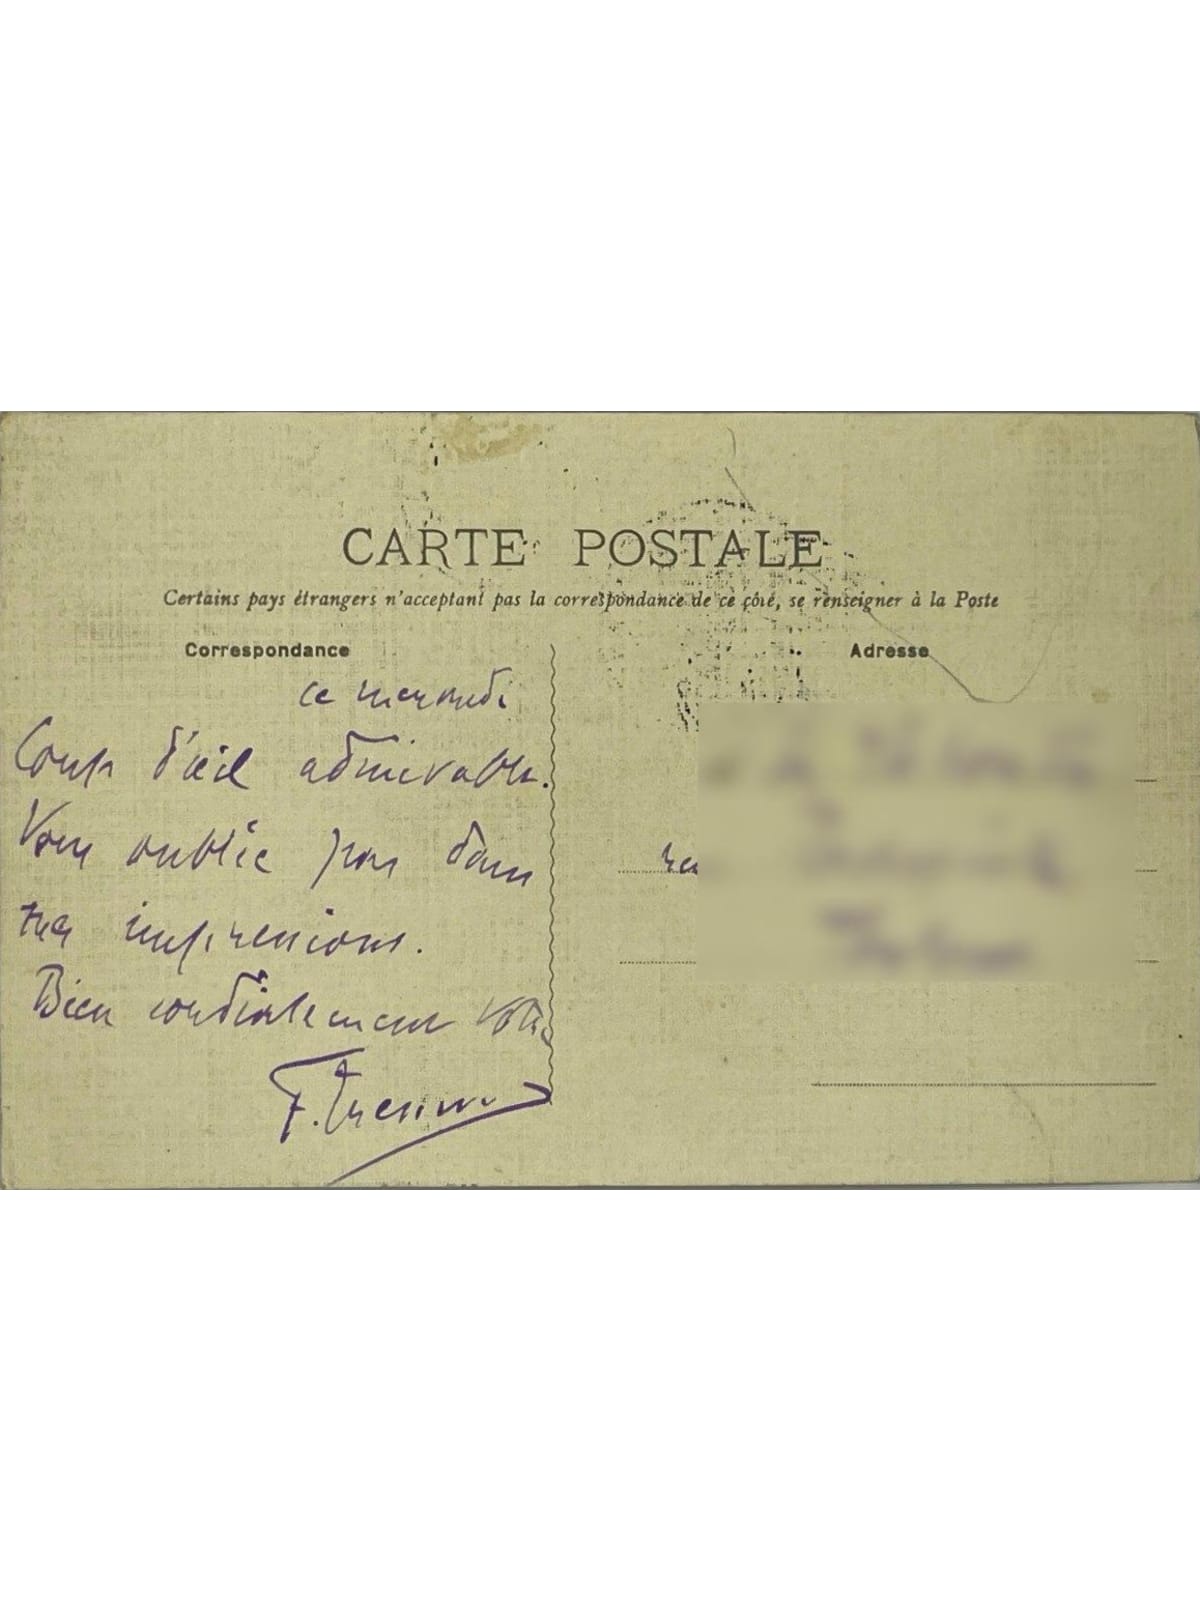 CARTE POSTALE
Certains pays étrangers n'acceptant pas la correspondance de ce côté, se renseigner à la Poste
Correspondance
Adresse
ce mercredi
Coup d'œil admirable.
Vous oublie pas dans
mes impressions.
Bien cordialement votre
F.
rue